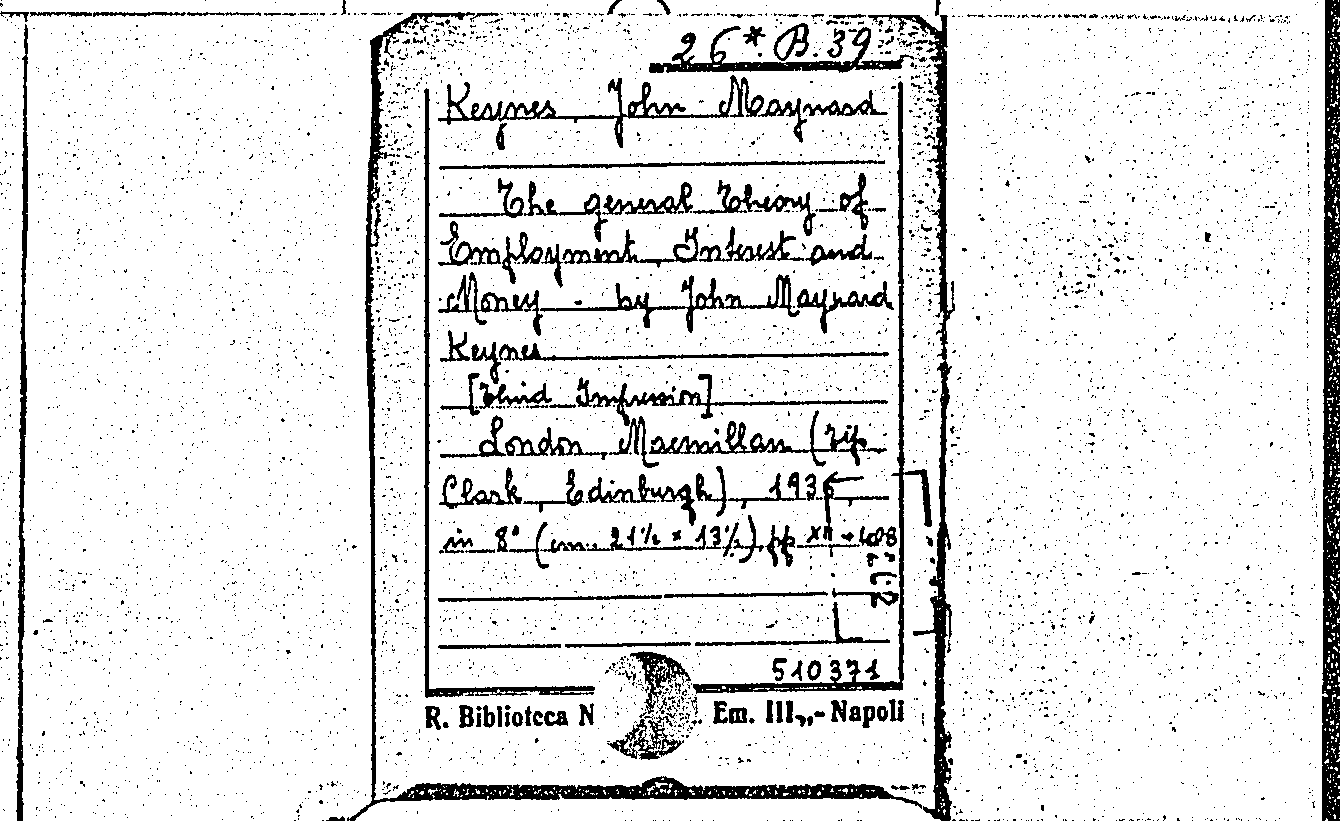 26*.B.39
Keynes, John Maynard
The general Theory of
Employment, Interest and
Money - by John Maynard
Keynes.
[Third Impression]
London, Macmillan (tip.
Clark, Edinburgh), 1936,
in 8° (cm. 21½ × 13½), pp. XII - 408
510371
R. Biblioteca N . Em. III„- Napoli